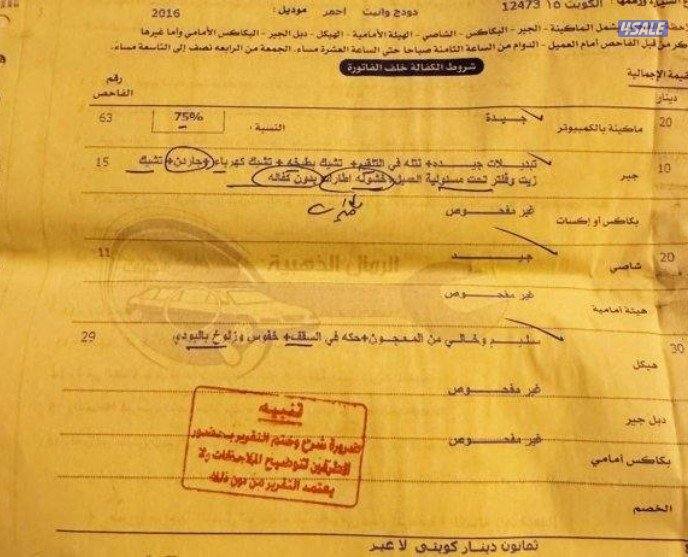 الكويت 15 12473 دودج وانيت احمر موديل: 2016
4SALE
شمل الماكينة - الجير - البكاكس - الشاصي - الهيئة الأمامية - الهيكل - دبل الجير - البكاكس الأمامي وأما غيرها
كر من قبل الفاحص أمام العميل - الدوام من الساعة الثامنة صباحا حتى الساعة العشرة مساء، الجمعة من الرابعه نصف إلى التاسعة مساء.
شروط الكفالة خلف الفاتورة
قيمة الإجمالية
دينار
رقم الفاحص
20 ماكينة بالكمبيوتر جيدة النسبة: 75% 63
10 جير تبديلات جيده+ نتله في التقير+ تشيك بطيخه + تشيك كهرباء +جاردن+ تشيك 15
زيت وفلتر تحت مسئولية العميل+ خشوله اطارات بدون كفاله
بكاكس أو إكسات غير مفحوص
20 شاصي جيد 11
الروال الذهبية
هيئة أمامية غير مفحوص
30 هيكل سليم وخالي من المعجون+حكه في السقف+ خفوس وزلوخ بالبودي 29
دبل جير غير مفحوص
بكاكس أمامي غير مفحوص
تنبيه
ضرورة شرح وختم التقرير بحضور
الطرفين لتوضيح الملاحظات ولا
يعتمد التقرير من دون ذلك
الخصم
ثمانون دينار كويتي لا غير